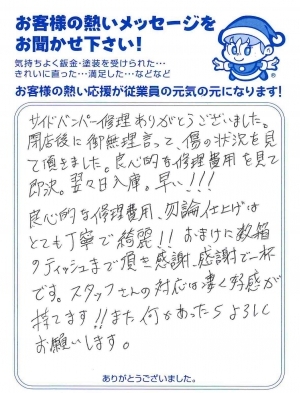 お客様の熱いメッセージを
お聞かせ下さい!
気持ちよく鈑金・塗装を受けられた…
きれいに直った…満足した…などなど
お客様の熱い応援が従業員の元気の元になります!
サイドバンパー修理ありがとうございました。
閉店後に御無理言って、傷の状況を見
て頂きました。良心的な修理費用を見て
即決。翌々日入庫。早い!!!
良心的な修理費用、勿論仕上げは
とても丁寧で綺麗!! おまけに数箱
のティッシュまで頂き感謝、感謝で一杯
です。スタッフさんの対応は凄く好感が
持てます!!また何かあったらよろしく
お願いします。
ありがとうございました。